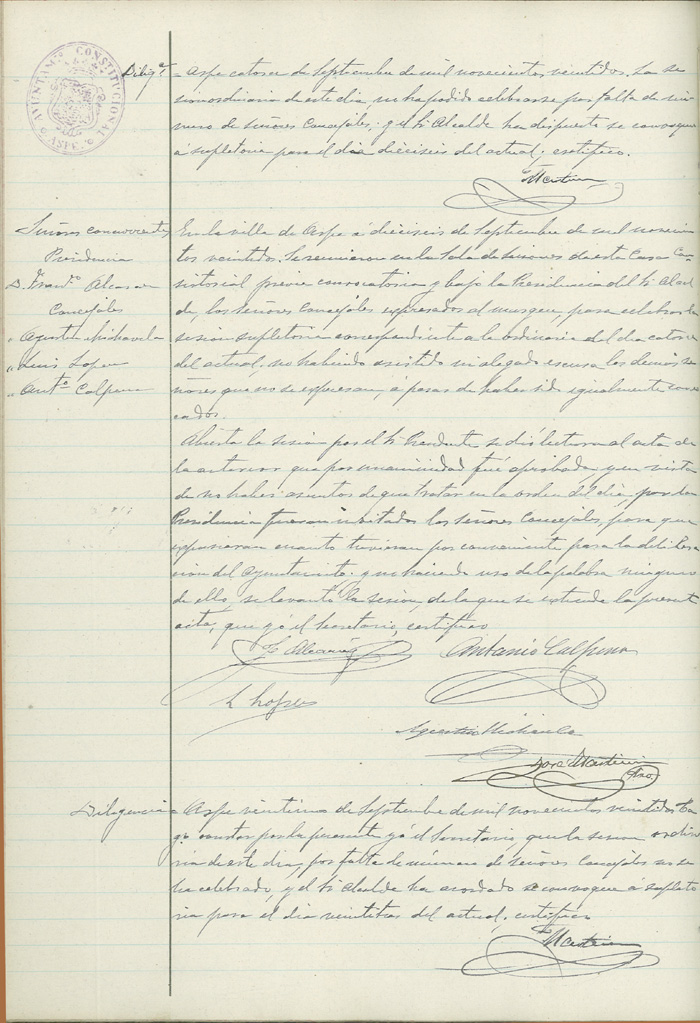 AYUNTAM.º CONSTITUCIONAL * ASPE *
Diligª = Aspe catorce de Septiembre de mil novecientos veintidos. La se
sion ordinaria de este dia, no ha podido celebrarse por falta de nú-
mero de señores Concejales; y el Sr Alcalde ha dispuesto se convoque
á supletoria para el dia dieciseis del actual; certifico.
Martinez
Señores concurrentes
Presidencia
D. Frandº Alcaraz
Concejales
" Agustin Michavila
" Luis Lopez
" Antº Calpena
En la villa de Aspe á dieciseis de Septiembre de mil novecien-
tos veintidos. Se reunieron en la Sala de sesiones de esta Casa Con-
sistorial previa convocatoria y bajo la Presidencia del Sr Alcal-
de, los señores Concejales expresados al margen, para celebrar la
sesion supletoria correspondiente a la ordinaria del dia catorce
del actual, no habiendo asistido ni alegado escusa los demás se-
ñores que no se expresan, a pesar de haber sido igualmente convo-
cados.
Abierta la sesion por el Sr Presidente se dió lectura al acta de
la anterior que por unanimidad fué aprobada, y en vista
de no haber asuntos de que tratar en la orden del dia, por la
Presidencia fueron invitados los señores Concejales, para que
expusieran cuanto tuvieran por conveniente para la delibera
cion del Ayuntamiento: y no haciendo uso de la palabra ninguno
de ellos, se levantó la sesion, de la que se extiende la presente
acta, que yo el Secretario, certifico
F. Alcaraz
Antonio Calpena
L. Lopez
Agustin Michavila
José Martinez
Srio.
Diligencia = Aspe veintiuno de Septiembre de mil novecientos veintidos Ha-
go constar por la presente yo el Secretario, que la sesion ordina
ria de este dia, por falta de numero de señores Concejales no se
ha celebrado, y el Sr Alcalde ha acordado se convoque á supleto
ria para el dia veintitres del actual, certifico
Martinez